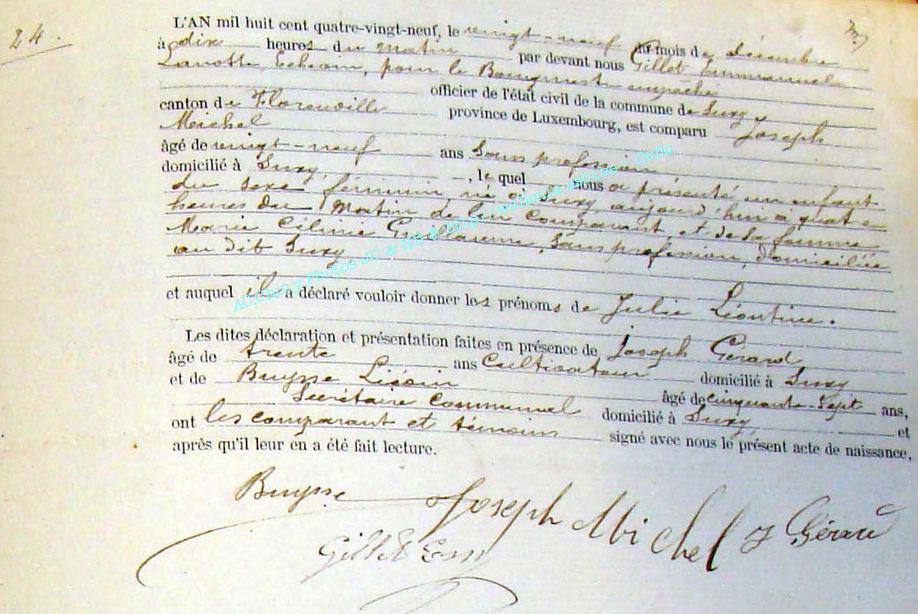 24.
L'AN mil huit cent quatre-vingt-neuf, le vingt-neuf du mois de décembre
à dix heures du matin par devant nous Gillet Emmanuel
Lanotte Echevin, pour le Bourgmestre empêché
officier de l'état civil de la commune de Suxy
canton de Florenville province de Luxembourg, est comparu Joseph
Michel
âgé de vingt-neuf ans Sans profession
domicilié à Suxy, , le quel nous a présenté un enfant
du sexe féminin, né à Suxy aujourd'hui à quatre
heures du Matin de lui comparant et de sa femme
Marie Célinie Guillaume, sans profession, domiciliée
au dit Suxy
et auquel il a déclaré vouloir donner les prénoms de Julie Léontine.
Les dites déclaration et présentation faites en présence de Joseph Gerard
âgé de trente ans Cultivateur domicilié à Suxy
et de Buysse âgé de cinquante-sept ans,
Secrétaire communal domicilié à Suxy, et
ont les comparant et témoins signé avec nous le présent acte de naissance,
après qu'il leur en a été fait lecture.
Buysse Joseph Michel J Gérard
Gillet Em